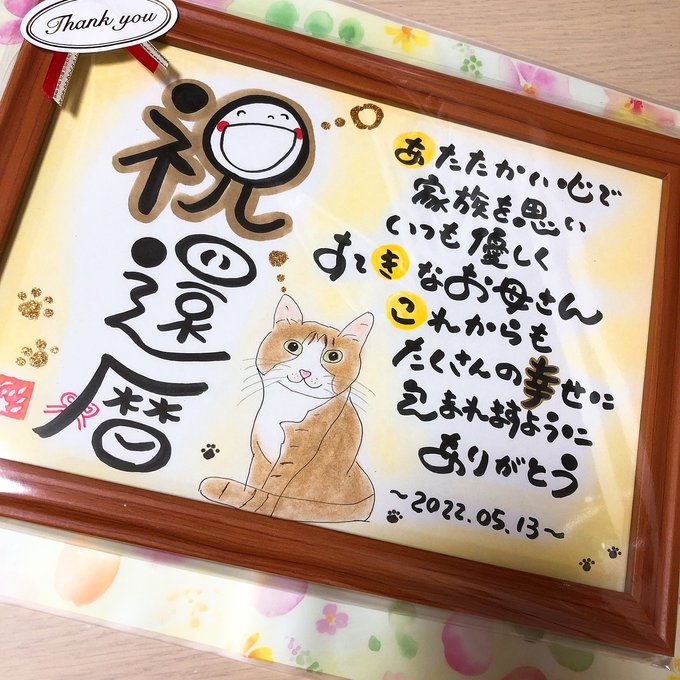 Thank you
祝
還暦
あたたかい心で
家族を思い
いつも優しく
すてきなお母さん
これからも
たくさんの幸せに
包まれますように
ありがとう
～2022.05.13～